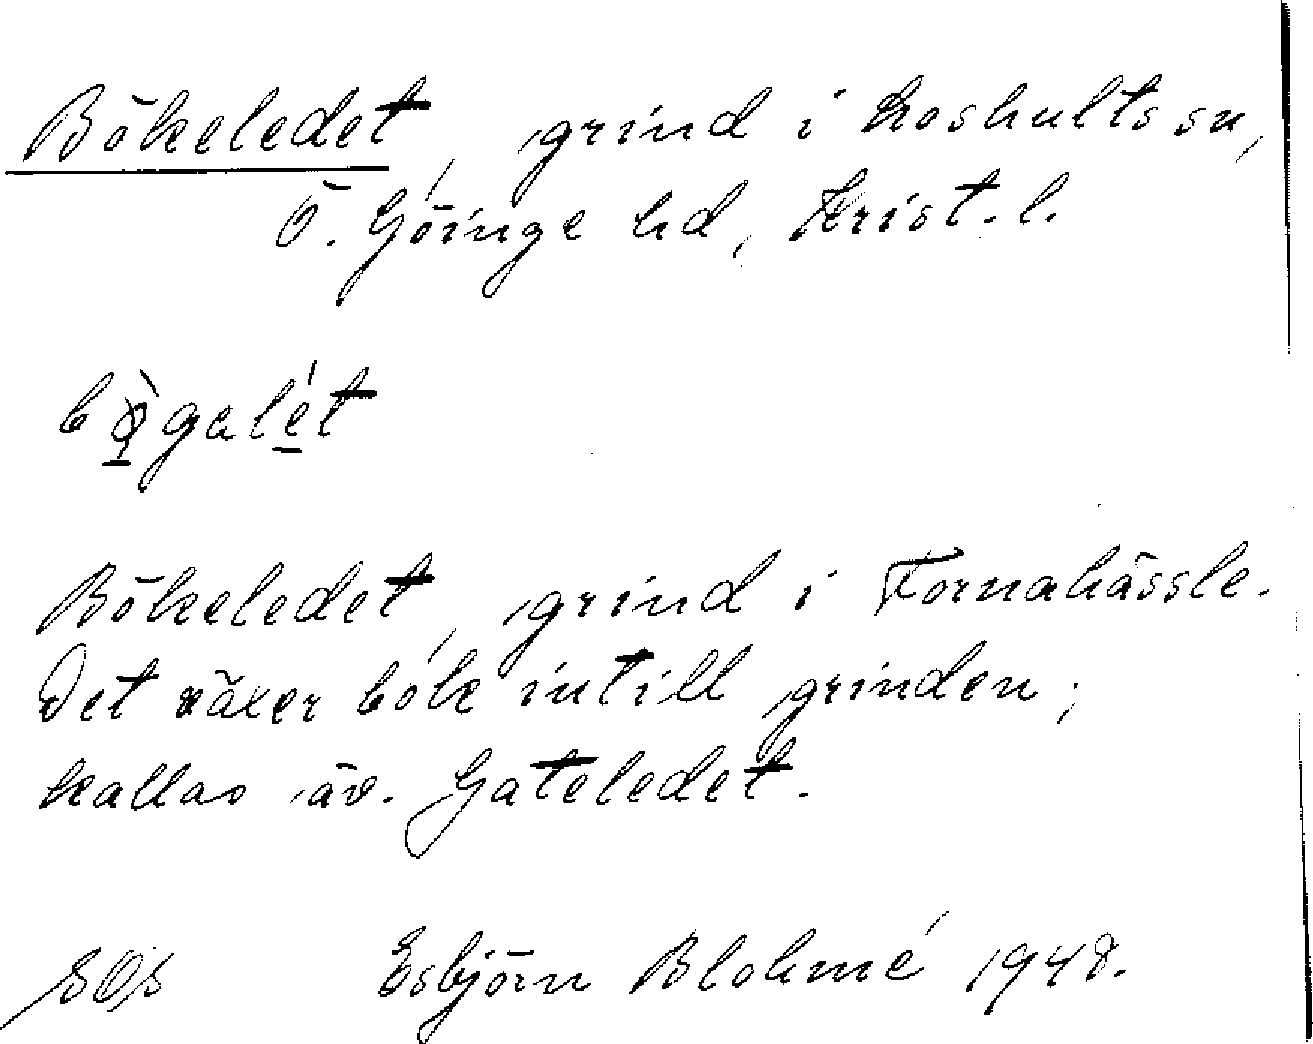 Bökeledet, grind i Loshults sn,
Ö. Göinge hd, Krist. l.
Bökeledet, grind i Tornahässle.
Det växer bök intill grinden;
kallas äv. Gateledet.
Esbjörn Blohmé 1948.